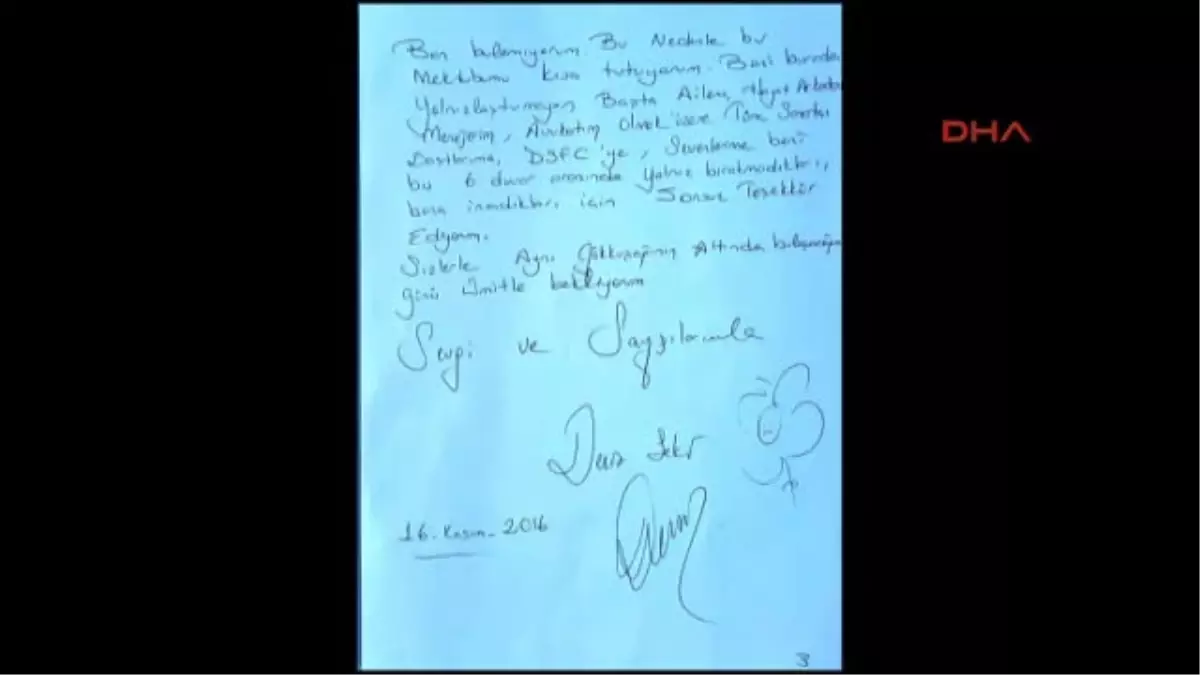 Ben bilemiyorum. Bu Nedenle bu
Mektubumu kısa tutuyorum. Beni burada
Yalnızlaştırmayan Başta Ailem, Hayat Arkadaşım
Menejerim, Avukatım olmak üzere Tüm Sanatçı
Dostlarıma, DSFC'ye, Sevenlerime beni
bu 6 duvar arasında yalnız bırakmadıkları,
bana inandıkları için Sonsuz Teşekkür
Ediyorum.
Sizlerle Aynı Gökkuşağının Altında buluşacağım
günü Ümitle bekliyorum
Sevgi ve Saygılarımla
Deniz Seki
16. Kasım. 2016
3
DHA